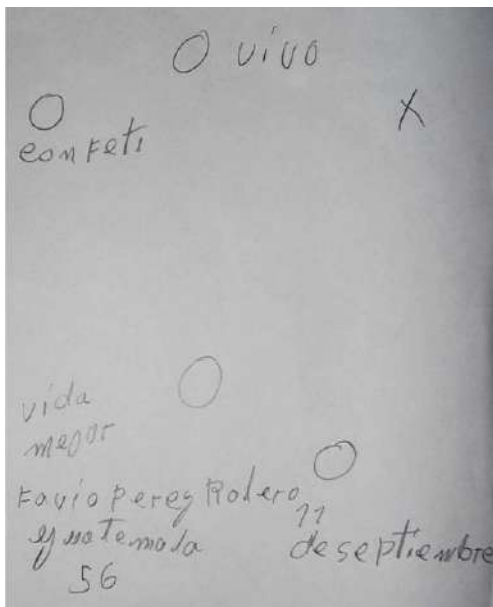 O vivo
O
X
confeti
O
vida
mejor
O
Favio Perez Rolero
11
guatemala
de septiembre
56